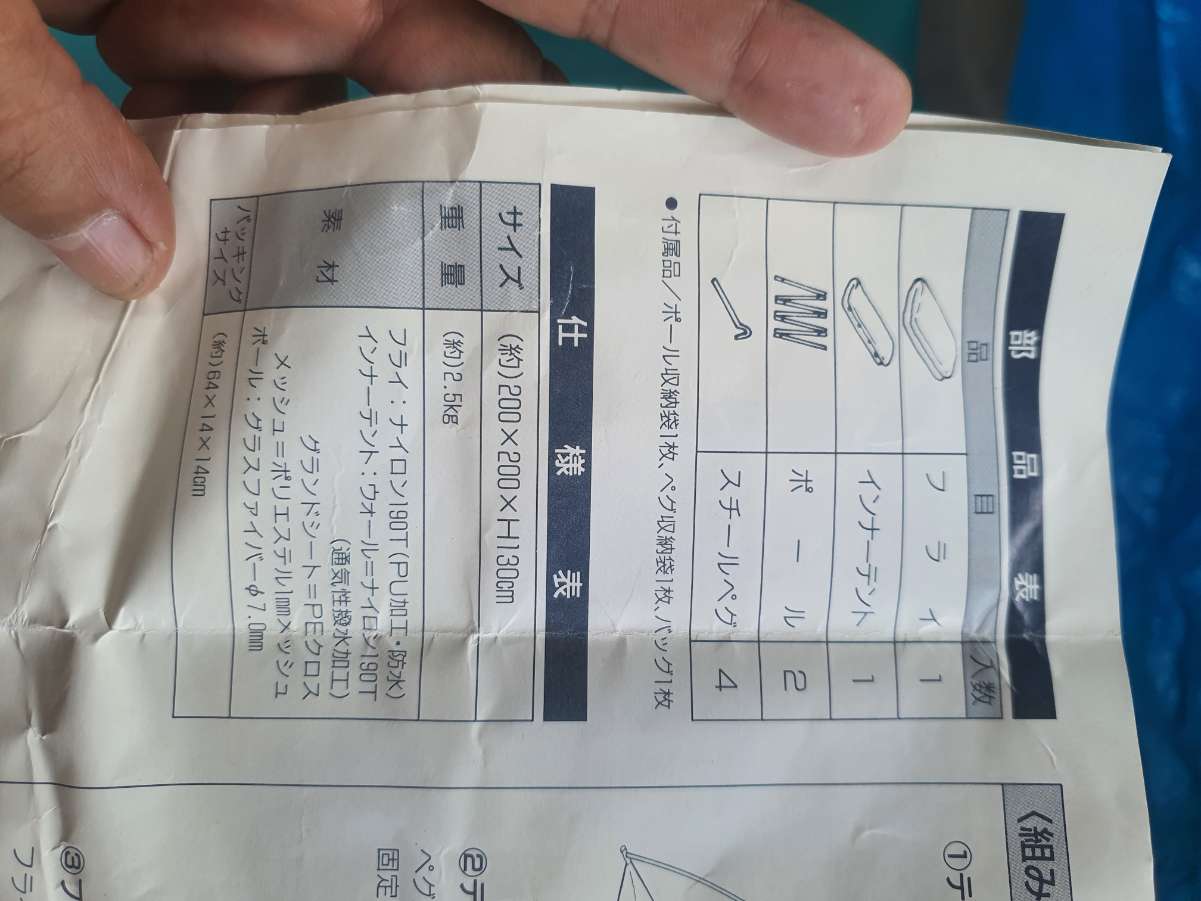 部品表
品目 入数
フライ 1
インナーテント 1
ポール 2
スチールペグ 4
●付属品／ポール収納袋1枚、ペグ収納袋1枚、バッグ1枚
仕様表
サイズ (約)200×200×H130cm
重量 (約)2.5kg
素材 フライ：ナイロン190T(PU加工・防水)
インナーテント：ウォール＝ナイロン190T
(通気性撥水加工)
グランドシート＝PEクロス
メッシュ＝ポリエステル1mmメッシュ
ポール：グラスファイバーφ7.0mm
パッキング
サイズ (約)64×14×14cm
〈組み
①テ
②テ
ペグ
固定
③フ
フラ